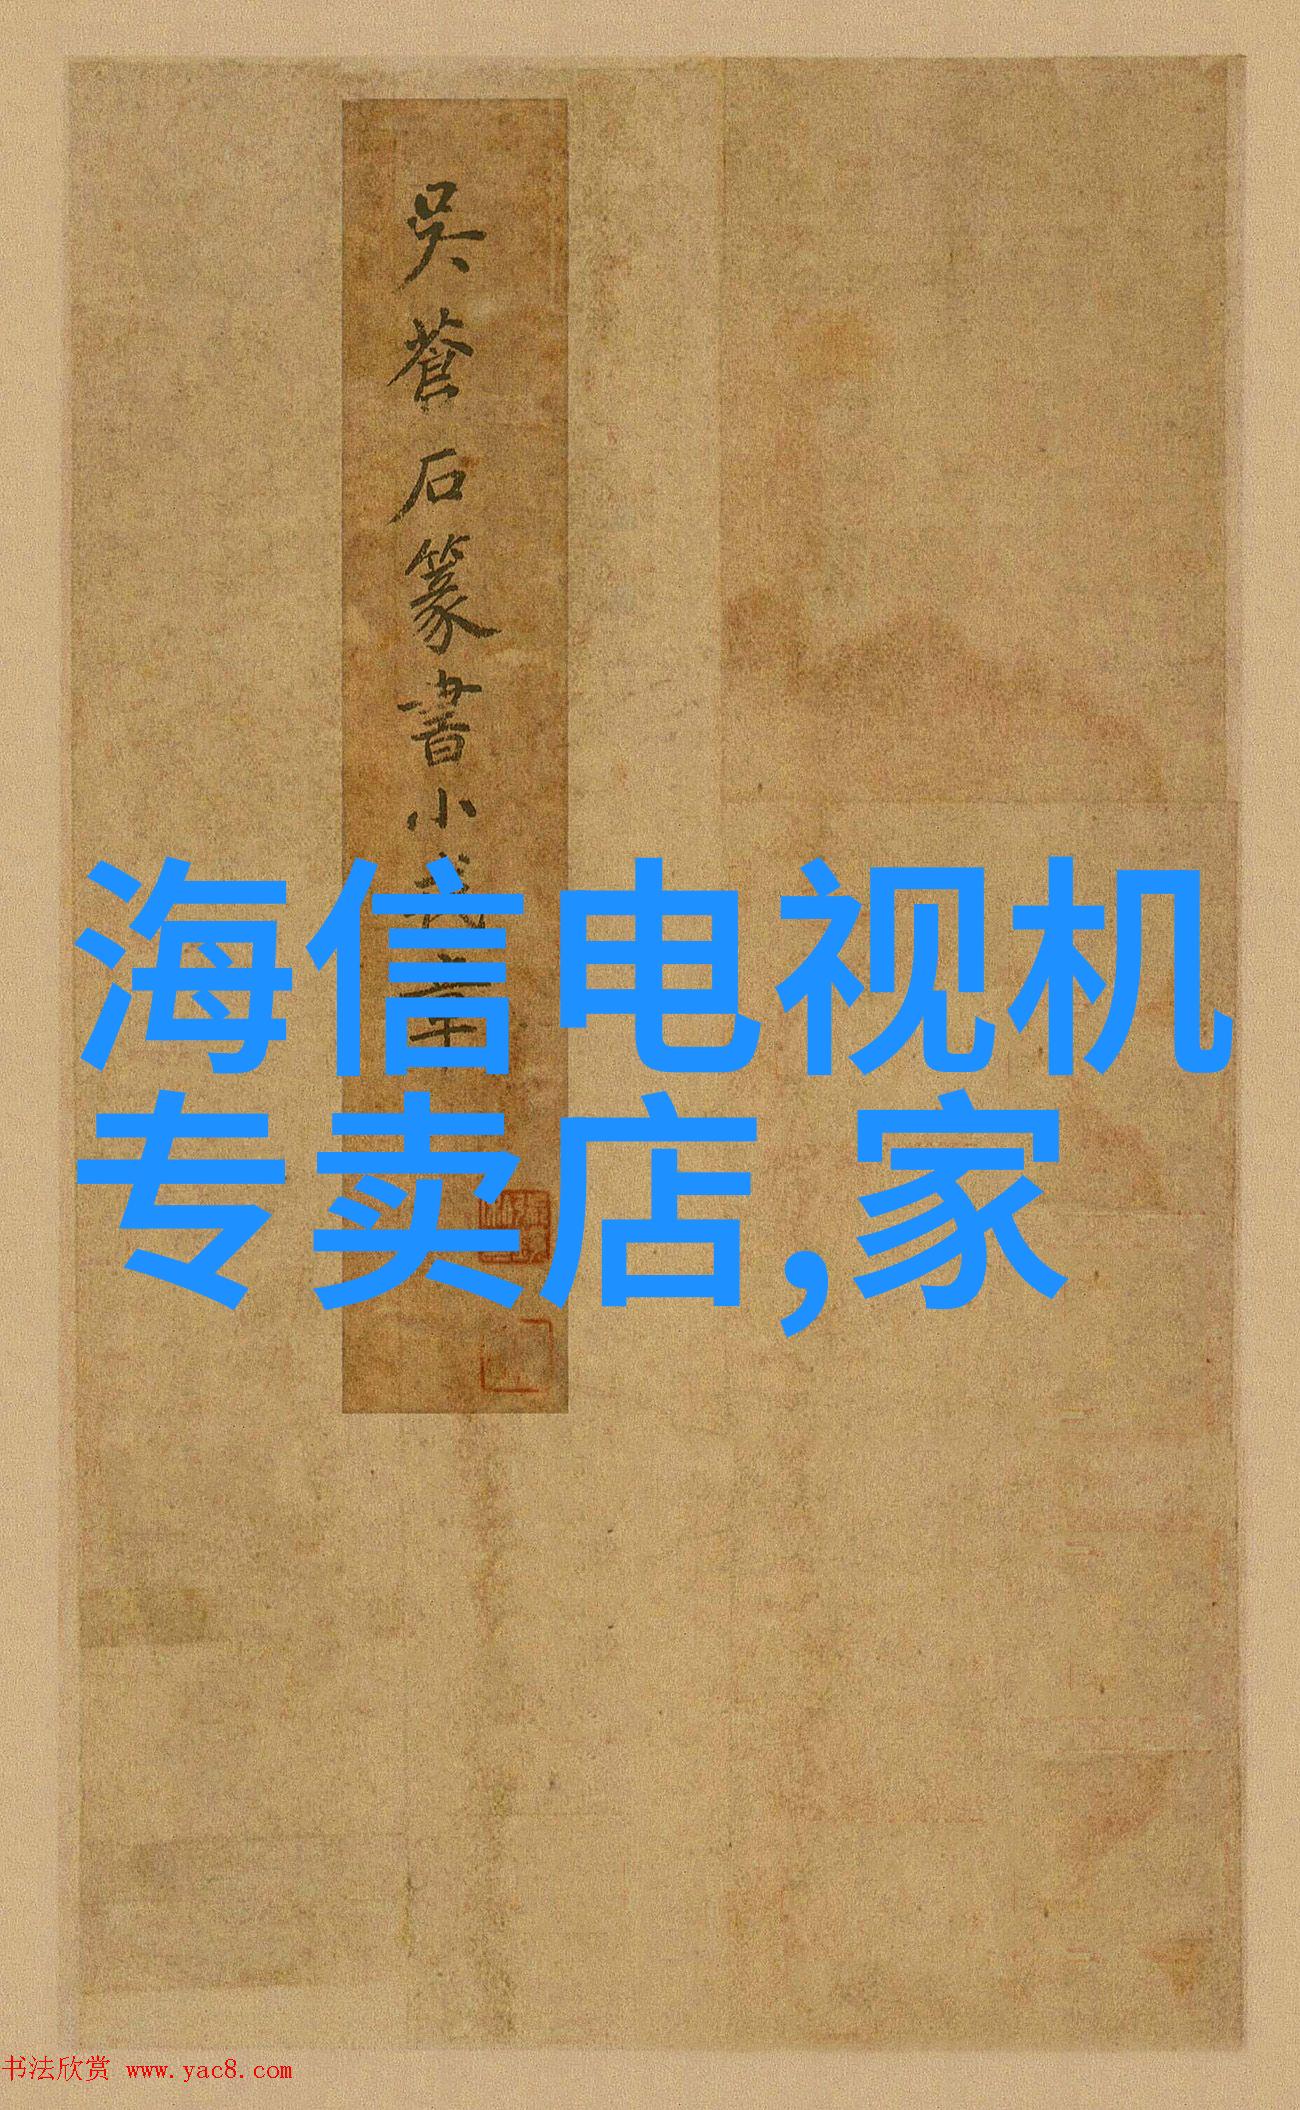 吳蒼石篆書小戎章
海信电视机
专卖店,家
书法欣赏 www.yac8.com